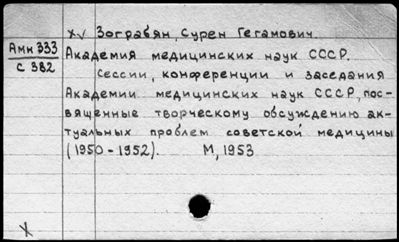 XV Зограбян, Сурен Гегамович.
Амн 333
С 382
Академия медицинских наук СССР.
Сессии, конференции и заседания
Академии медицинских наук СССР, пос-
вященные творческому обсуждению ак-
туальных проблем советской медицины
(1950-1952). М, 1953
X